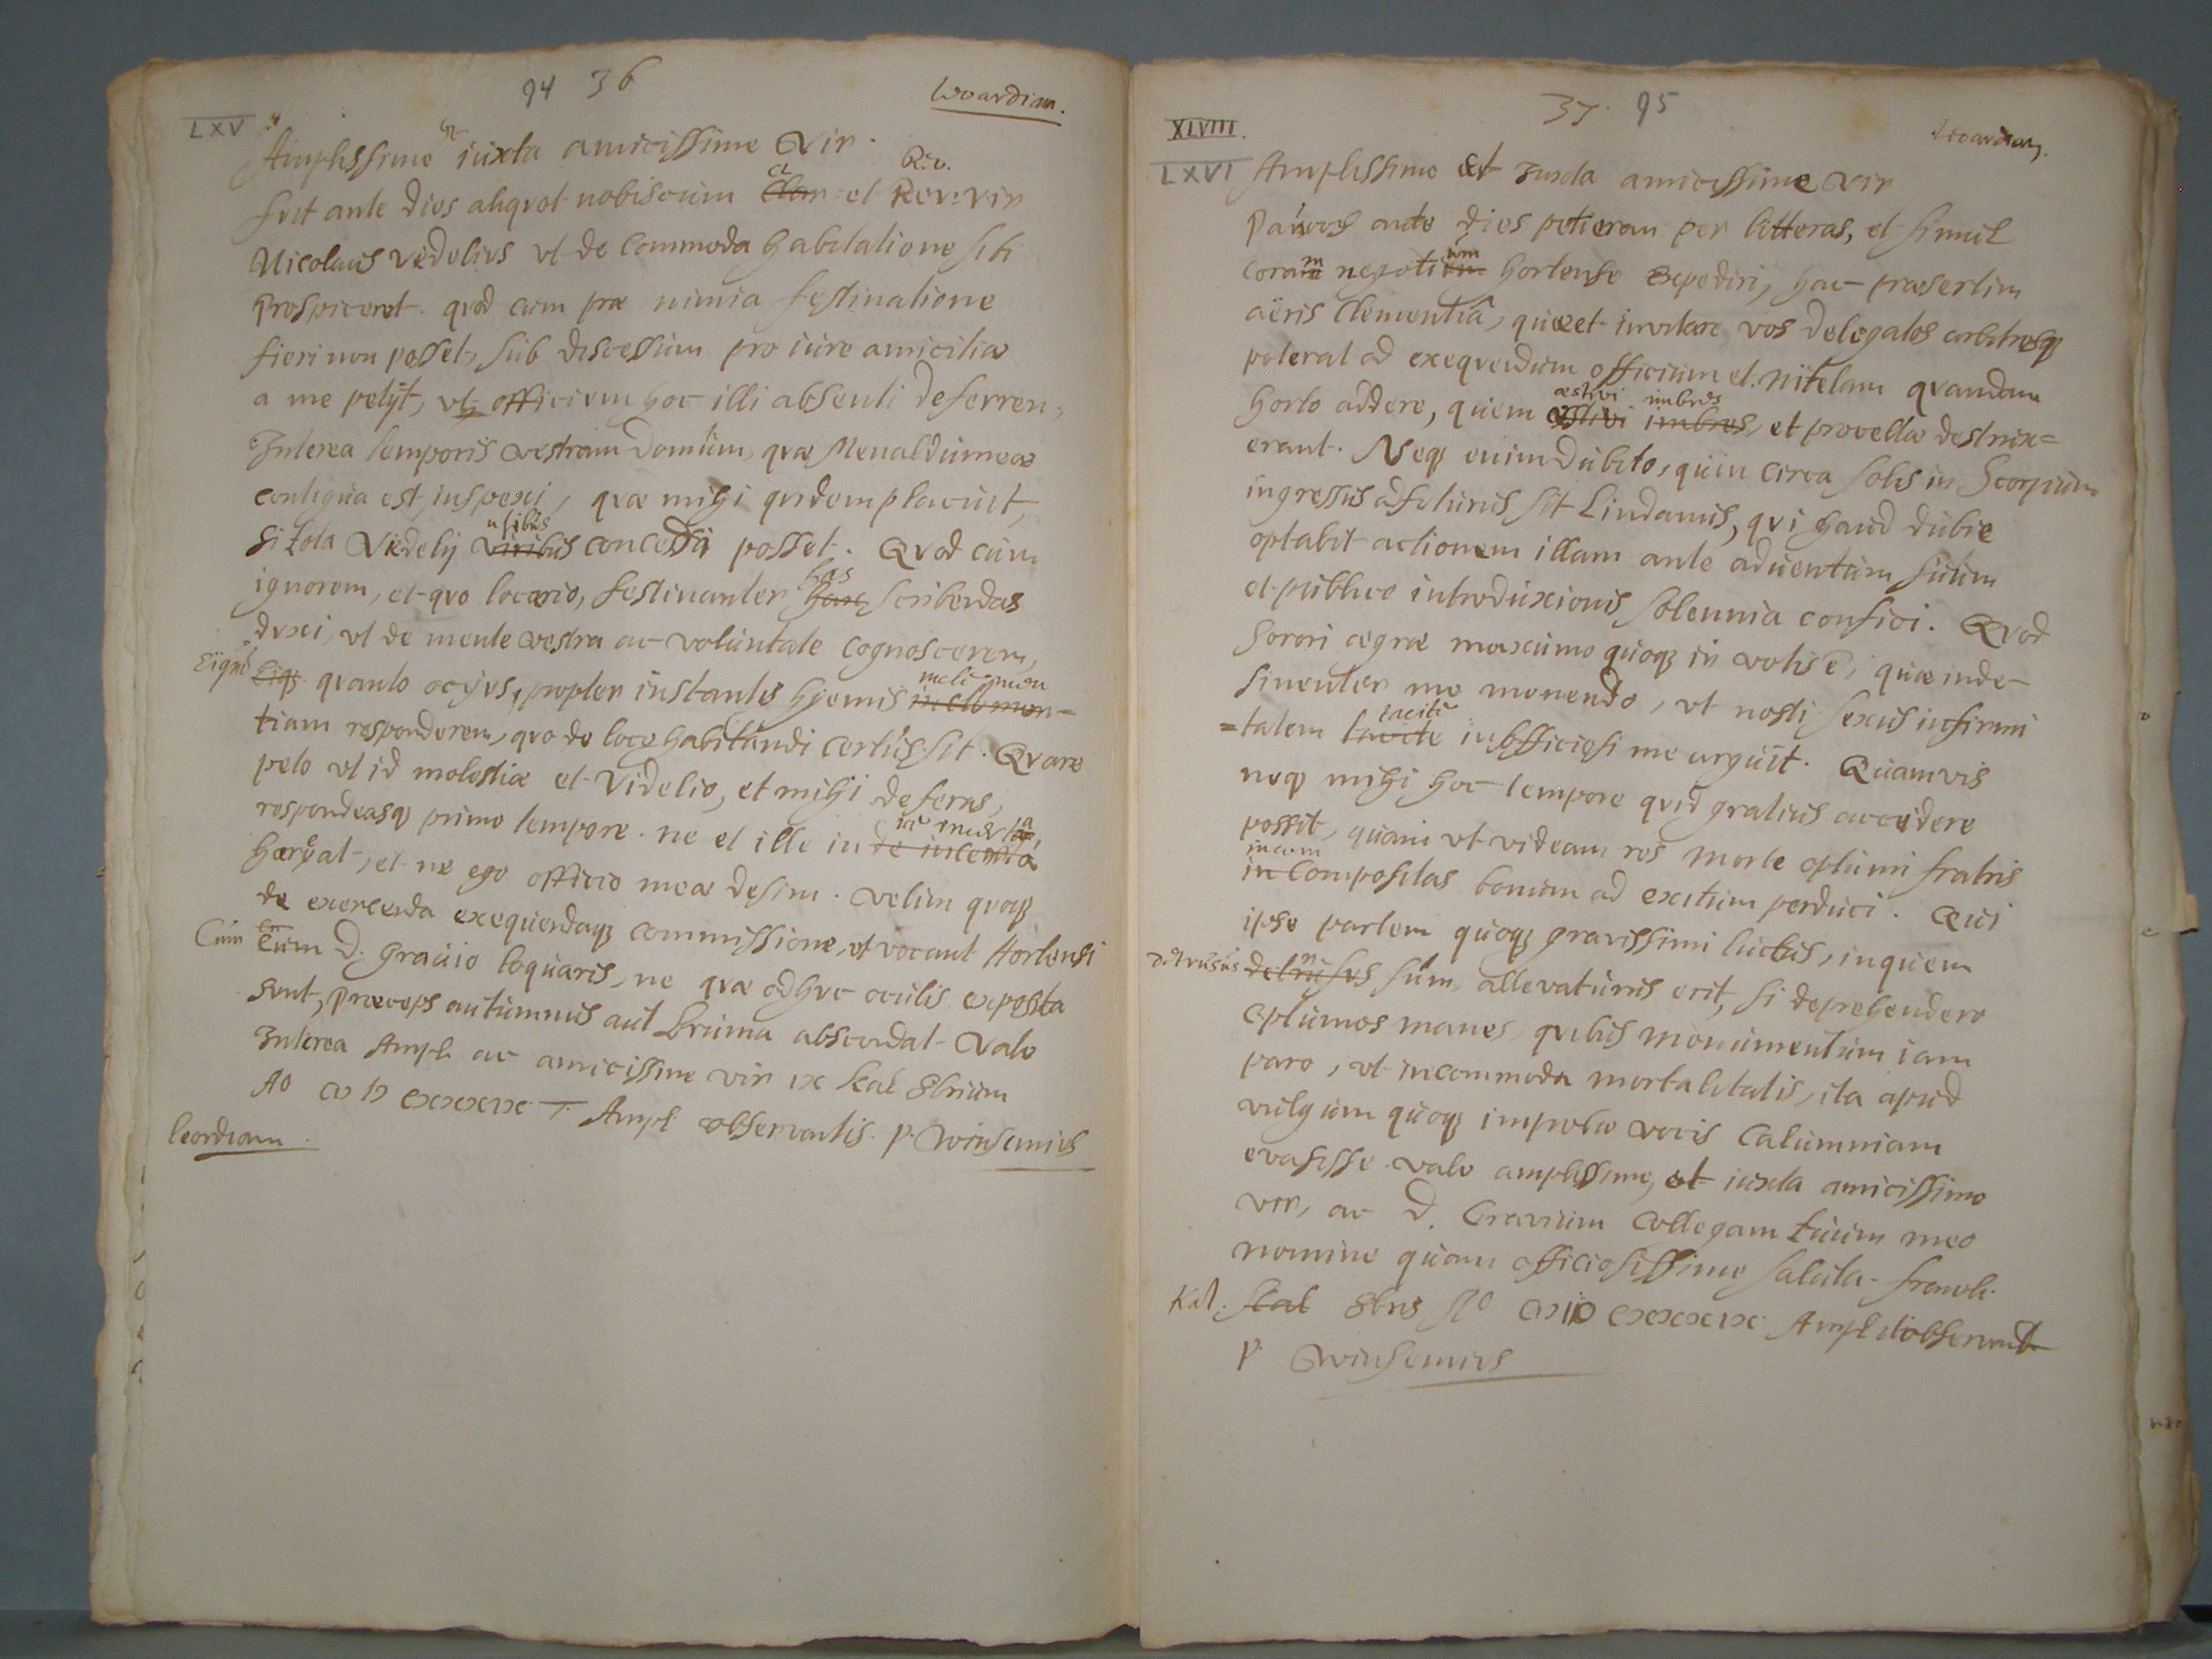 94 36
Leoardian.
LXV
Amplissime et iuxta amicissime Vir.
fuit ante dies aliquot nobiscum Clar et Rev: vir
Nicolaus Vedelius vt de commoda habitatione sibi
prospiceret. quod cum præ nimia festinatione
fieri non posset, sub discessum pro iure amicitiæ
a me petijt, vt officium hoc illi absenti deferrem,
Interea temporis vestram domum, quæ Menaldumeæ
contigua est, inspexi, quæ mihi quidem placuit,
si tota Vedelij usibus concedi posset. Quod cum
ignorem, et quo locario, festinanter has scribendas
duxi, vt de mente vestra ac voluntate cognoscerem,
Eique quanto ocijus, propter instantis hyemis inclemen-
tiam responderem, quo de loco habitandi certus sit. Quare
peto vt id molestiæ et Videlio, et mihi deferas,
respondeasq primo tempore. ne et ille in incerto
hæreat, et ne ego officio meo desim. Velim quoq
de exercenda exequendaq commissione, vt vocant Hortensi
Cum D. Gravio loquaris, ne quæ adhuc oculis exposita
sunt, præceps autumnus aut bruma abscondat. Vale
Interea Ampl. ac amicissime vir ix kal 8brium
Ao CIƆ IƆ CXXXIX Ampl. observantis. P. Winsemius
Leordiam.
37. 95
XLVIII.
Leoardiam.
LXVI
Amplissime et Iuxta amicissime Vir
Paucos ante dies petieram per litteras, et simul
coram negotium hortense expediri, hac præsertim
aëris clementiâ, quæ et invitare vos delegatos arbitrosq
poterat ad exequendum officium et nitelam quandam
horto addere, quem æstivi imbres, et procellæ destrux=
erant. Neq enim dubito, quin circa solis in Scorpium
ingressus adfuturus sit Lindanus, qui haud dubie
optabit actionem illam ante adventum suum
et publico introduxionis solennia confici. Quod
Sorori ægræ maximo quoq in votis ē, quæ inde-
sinenter me monendo, vt nosti sexus infirmi
=tatem tacite inofficiosi me arguit. Quamvis
neq mihi hoc tempore quid gratius accidere
possit, quam vt videam res morte optimi fratris
incompositas bonum ad exitum perduci. Qui
ipse partem quoq gravissimi luctus, in quem
detrusus sum, allevaturus erit, si deprehendero
optimos manes, quibus monumentum iam
paro, vt incommoda mortalitatis, ita apud
vulgum quoq improbæ vocis calumniam
evasisse. vale amplissime, et iuxta amicissime
vir, ac D. Grævium collegam tuum meo
nomine quam officiosissime saluta. franek.
Kal. 8bris Ao CIƆ IƆ CXXXIX Ampl. observant
P. Winsemius